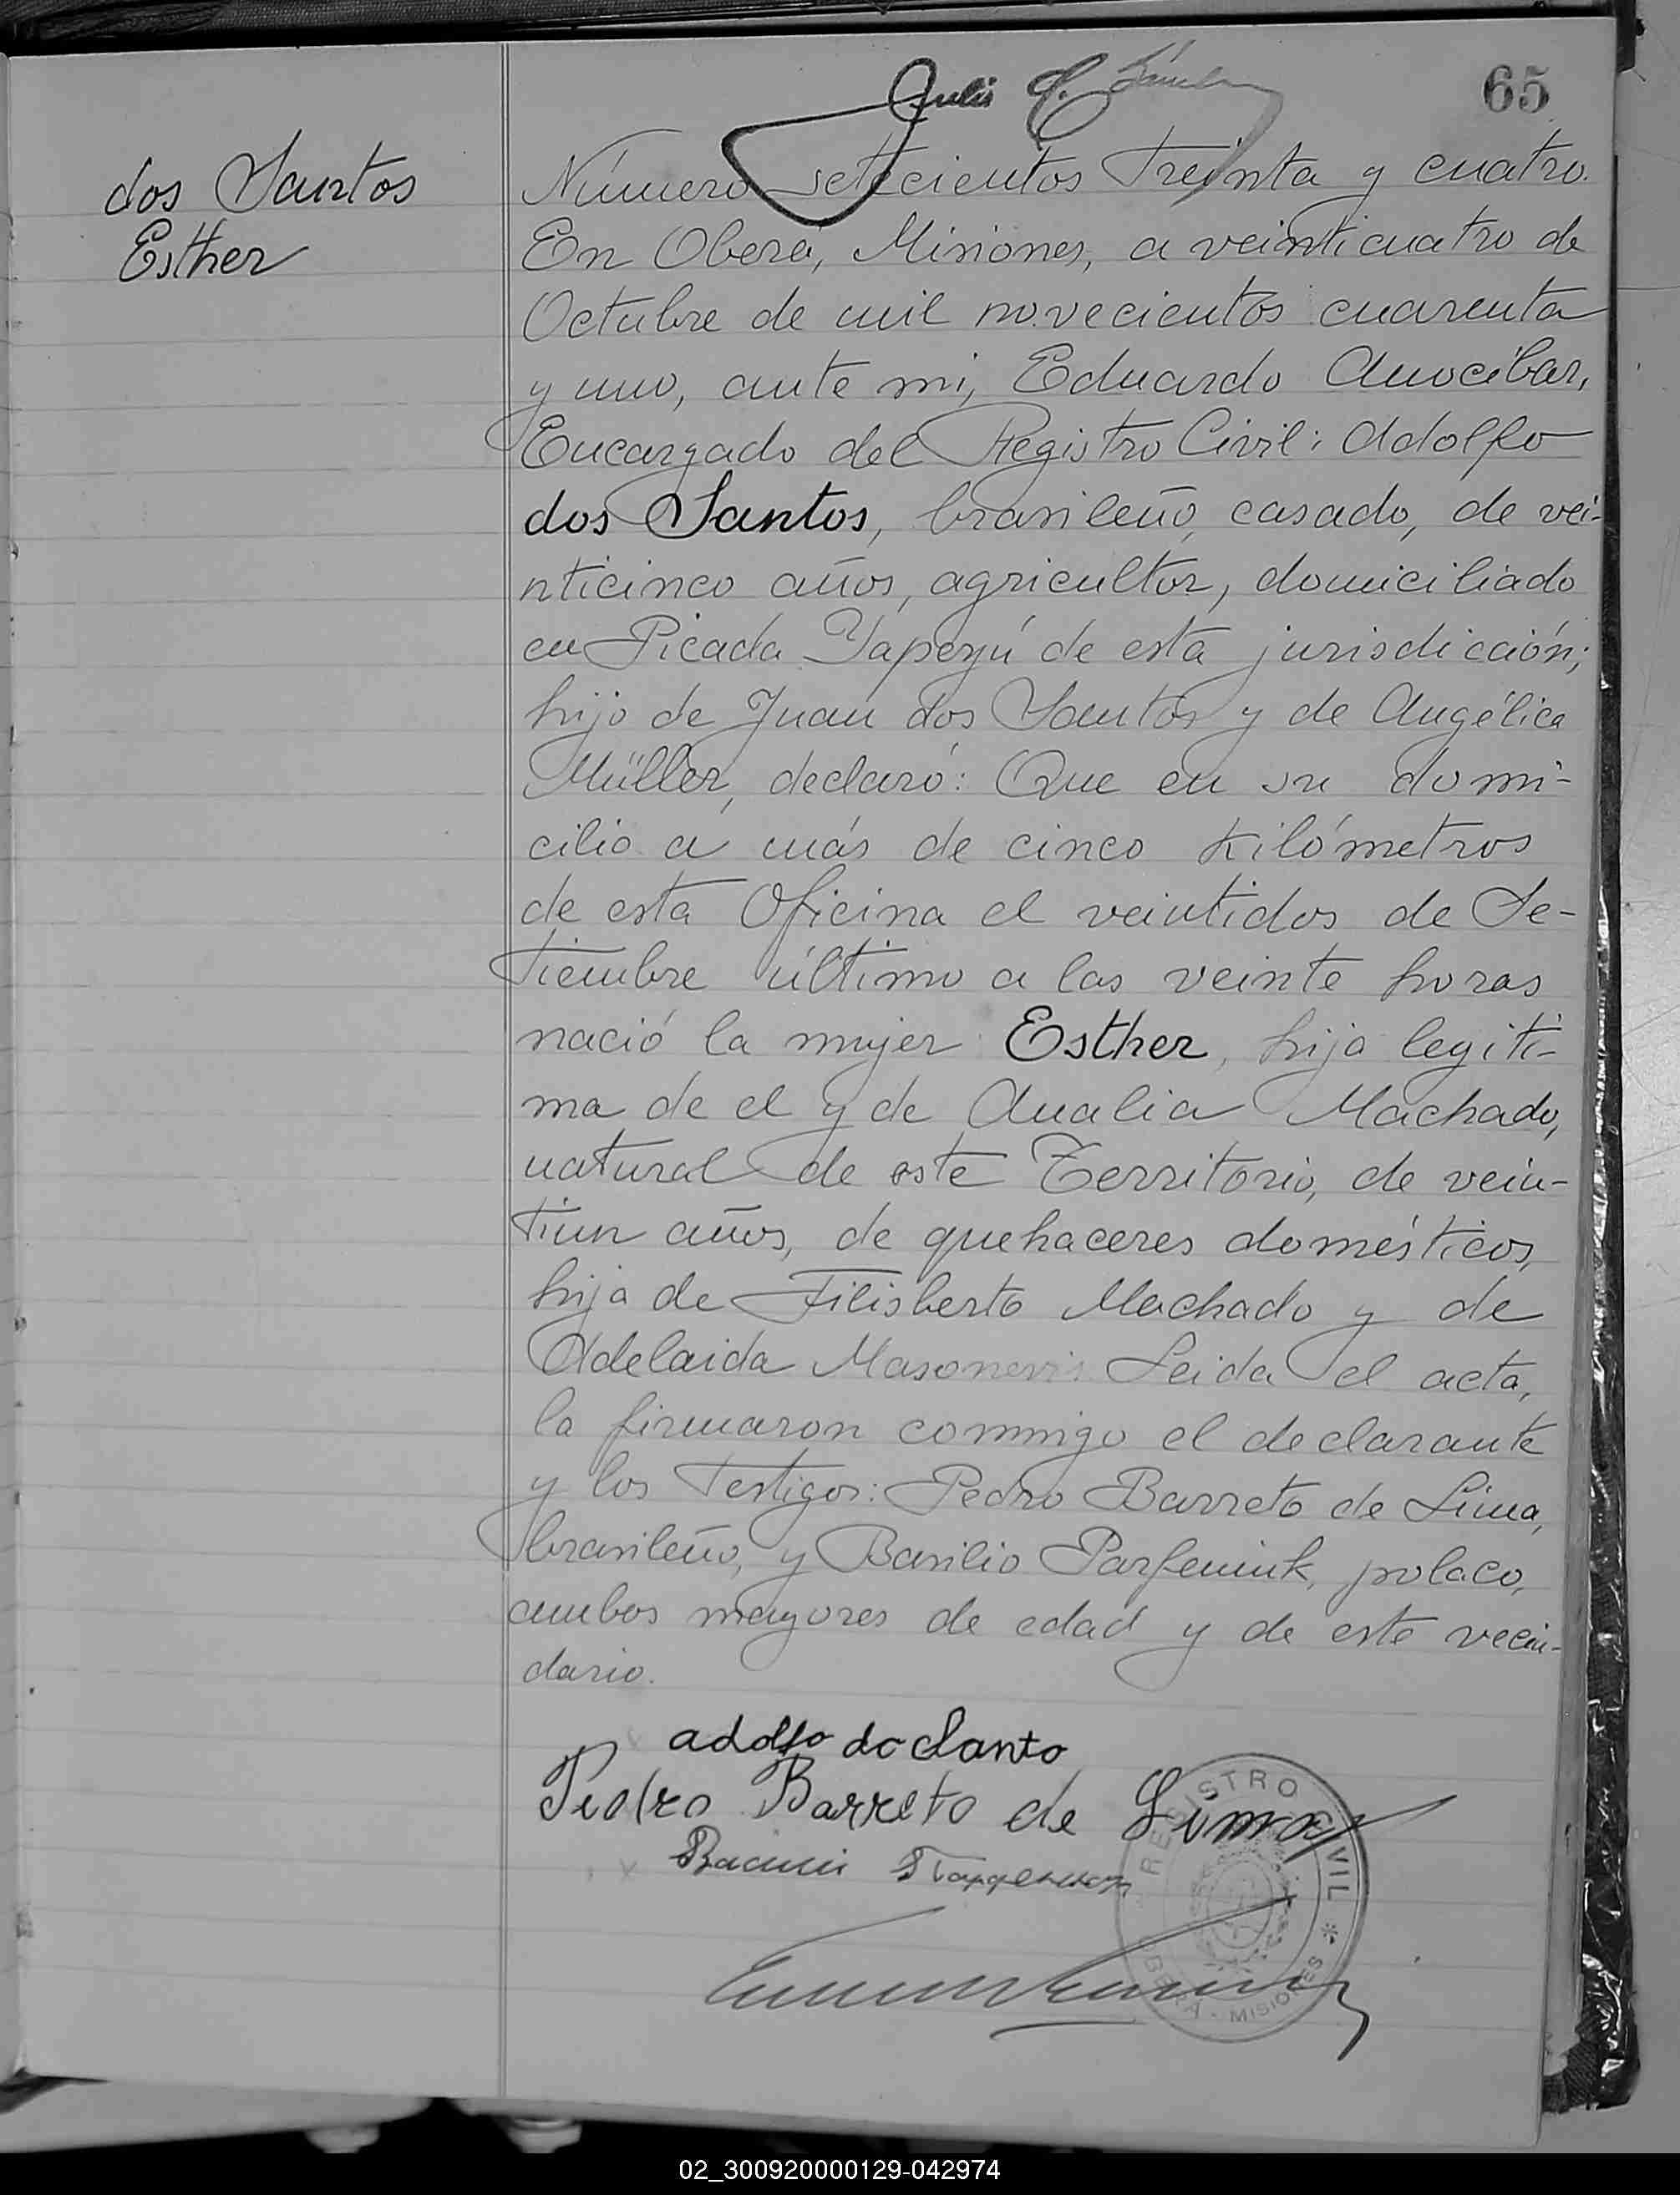 65
dos Santos
Esther
Número setecientos treinta y cuatro.
En Oberá, Misiones, a veinticuatro de
Octubre de mil novecientos cuarenta
y uno, ante mi, Eduardo Anocibar,
Encargado del Registro Civil: Adolfo
dos Santos, brasileño, casado, de vei-
nticinco años, agricultor, domiciliado
en Picada Yapeyú de esta jurisdicción;
hijo de Juan dos Santos y de Angélica
Müller, declaró: Que en su domi-
cilio a más de cinco kilómetros
de esta Oficina el veintidos de Se-
tiembre último a las veinte horas
nació la mujer Esther, hija legíti-
ma de el y de Analia Machado,
natural de este Territorio, de vein-
tiun años, de quehaceres domésticos,
hija de Filisberto Machado y de
Adelaida Leida el acta,
la firmaron conmigo el declarante
y los testigos: Pedro Barreto de Lima,
brasileño, y Basilio Parfeniuk, polaco,
ambos mayores de edad y de este vecin-
dario.
adolfo do Santo
Pedro Barreto de Lima
REGISTRO CIVIL * OBERÁ - MISIONES
02_300920000129-042974